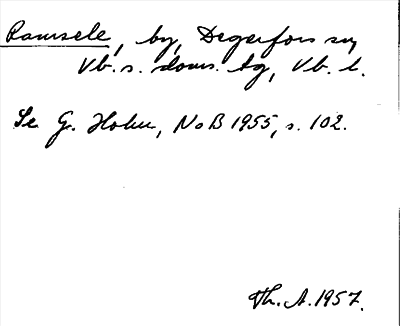 Ramsele, by, Degerfors sn,
Vb. s. doms. tg, Vb. l.
Se G. Holm, NoB 1955, s. 102.
Th. A. 1957.